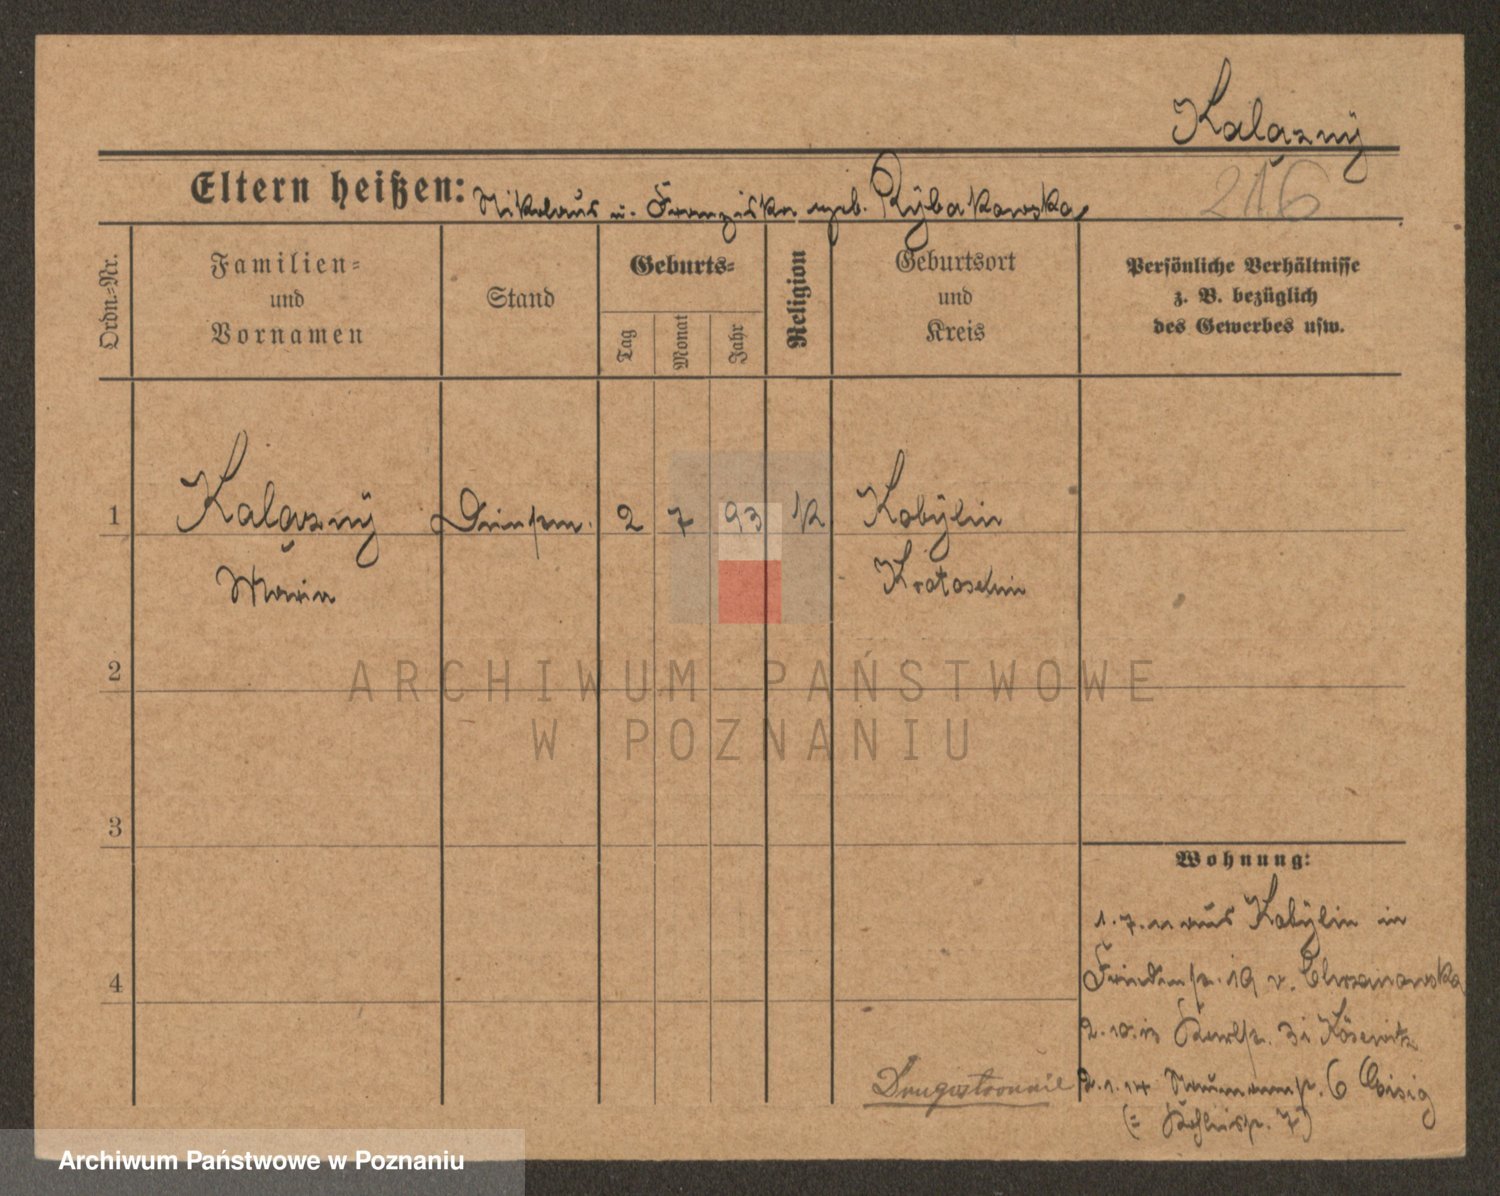 Kalązny
216
Eltern heißen: Nikolaus u. Franziska geb. Rybakowska
Ordn.-Nr.
Familien-
und
Vornamen
Stand
Geburts-
Tag
Monat
Jahr
Religion
Geburtsort
und
Kreis
Persönliche Verhältnisse
z. B. bezüglich
des Gewerbes usw.
1
Kalązny
Maria
2
7
93
K
Kobylin
Krotoschin
2
3
4
Wohnung:
1.7.11 aus Kobylin in
19 v. Chrzanowska
2.10.13 31
2.1.14 Naumannstr. 6
7)
ARCHIWUM PAŃSTWOWE
W POZNANIU
Archiwum Państwowe w Poznaniu